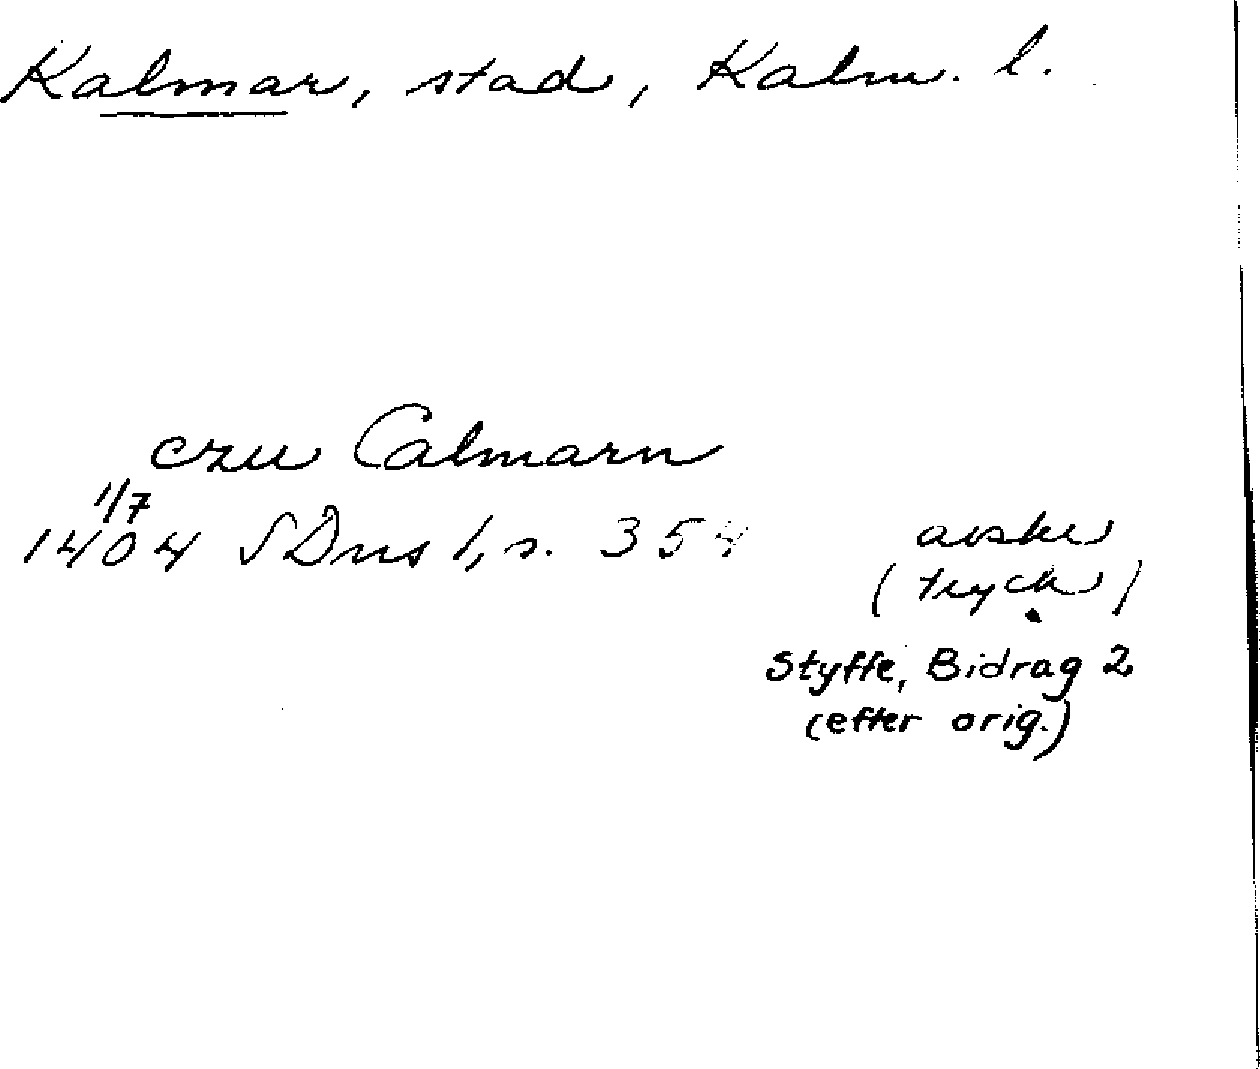 Kalmar, stad, Kalm. l.
czu Calmarn
1/7
1404 SDns 1, s. 354
avskr
(tryck)
Styffe, Bidrag 2
(efter orig.)